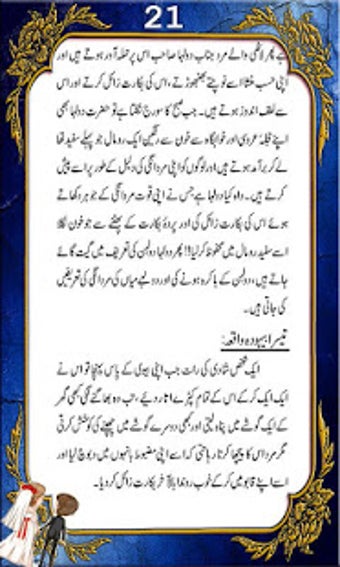 21
ہے پھر لاٹھی والے مرد جناب دولہا صاحب اس پر حملہ آور ہوتے ہیں اور
اپنی حسب منشا اسے نوچتے بھنبھوڑتے، اس کی بکارت زائل کرتے اور اس
سے لطف اندوز ہوتے ہیں۔ جب صبح کا سورج نکلتا ہے تو حضرت دولہا بھی
اپنے حجلۂ عروسی اور خوابگاہ سے خون سے رنگین ایک رومال جو پہلے سفید تھا
لے کر برآمد ہوتے ہیں اور لوگوں کو اپنی مردانگی کی دلیل کے طور پر اسے پیش
کرتے ہیں۔ واہ کیا دولہا ہے جس نے اپنی قوت مردانگی کے جوہر دکھاتے
ہوئے اس کی بکارت زائل کی اور پردۂ بکارت کے پھٹنے سے جو خون نکلا
اسے سفید رومال میں محفوظ کر لیا!! پھر دولہا دولہن کی تعریف میں گیت گائے
جاتے ہیں، دولہن کے باکرہ ہونے کی اور دولہے میاں کی مردانگی کی تعریفیں
کی جاتی ہیں۔
تیسرا بیہودہ واقعہ:
ایک شخص شادی کی رات جب اپنی بیوی کے پاس پہنچا تو اس نے
ایک ایک کر کے اس کے تمام کپڑے اتار دیئے، تب وہ بھاگنے لگی کبھی گھر
کے ایک گوشے میں پناہ لیتی اور کبھی دوسرے گوشے میں چھپنے کی کوشش کرتی
مگر مرد اس کا پیچھا کرتا رہا حتی کہ اسے اپنی مضبوط بانہوں میں دبوچ لیا اور
اسے اپنے قابو میں کر کے خوب روندا بالآخر بکارت زائل کر دیا۔